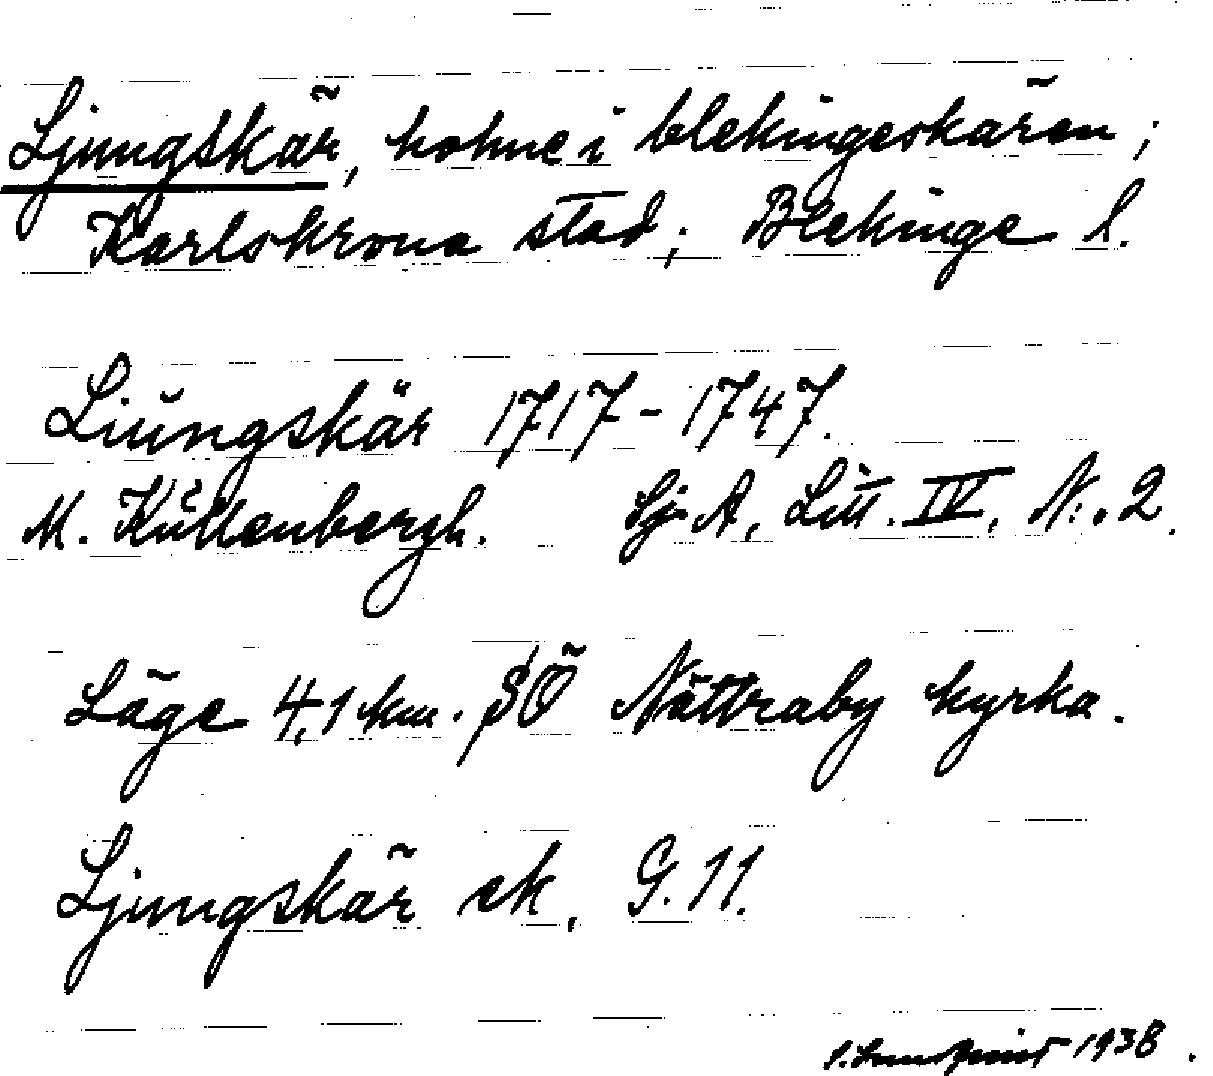 Ljungskär, holme i blekingeskären;
Karlskrona stad; Blekinge l.
Liŭngskär 1717-1747.
M. Kŭllenbergh. Sj A, Litt. IV, N:. 2.
Läge 4,1 km. SÖ Nättraby kyrka.
Ljungskär ek. G. 11.
1938.